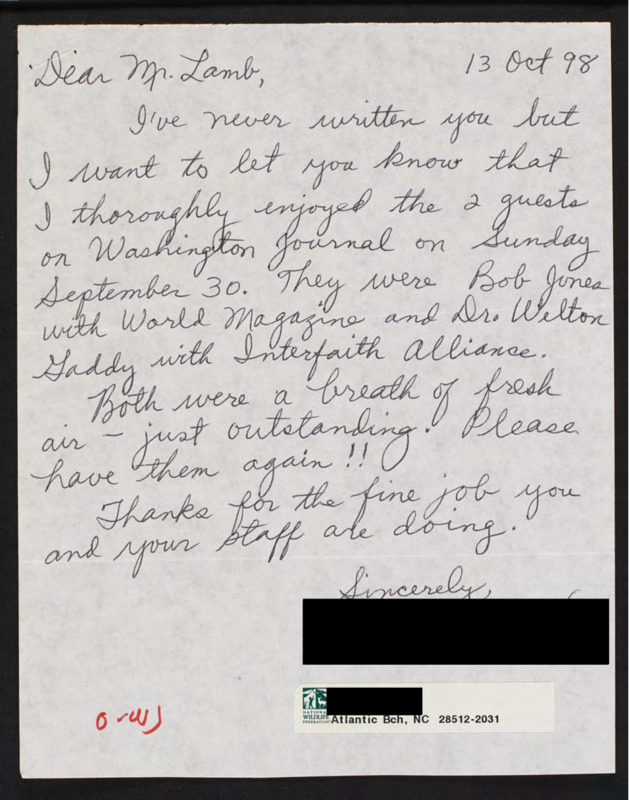 Dear Mr. Lamb,
13 Oct 98
I've never written you but
I want to let you know that
I thoroughly enjoyed the 2 guests
on Washington Journal on Sunday
September 30. They were Bob Jones
with World Magazine and Dr. Welton
Gaddy with Interfaith Alliance.
Both were a breath of fresh
air - just outstanding. Please
have them again!!
Thanks for the fine job you
and your staff are doing.
Sincerely,
NATIONAL
WILDLIFE
FEDERATION
Atlantic Bch, NC 28512-2031